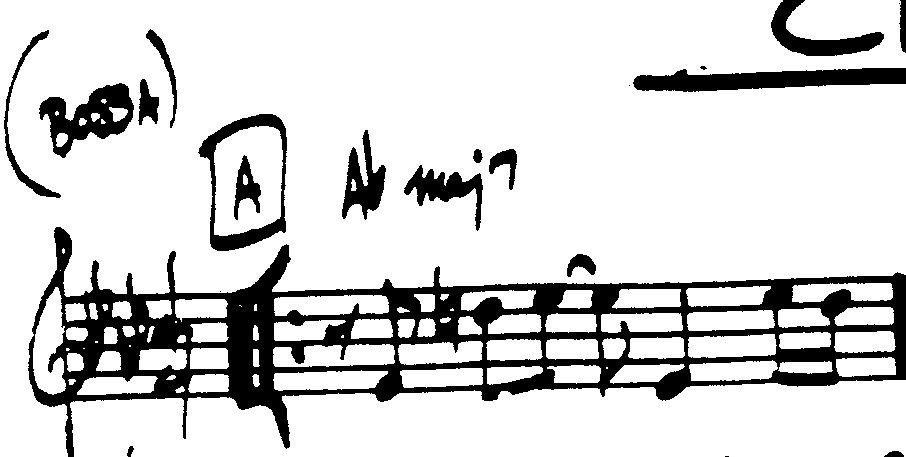 (BOSSA)
A
A♭ maj7